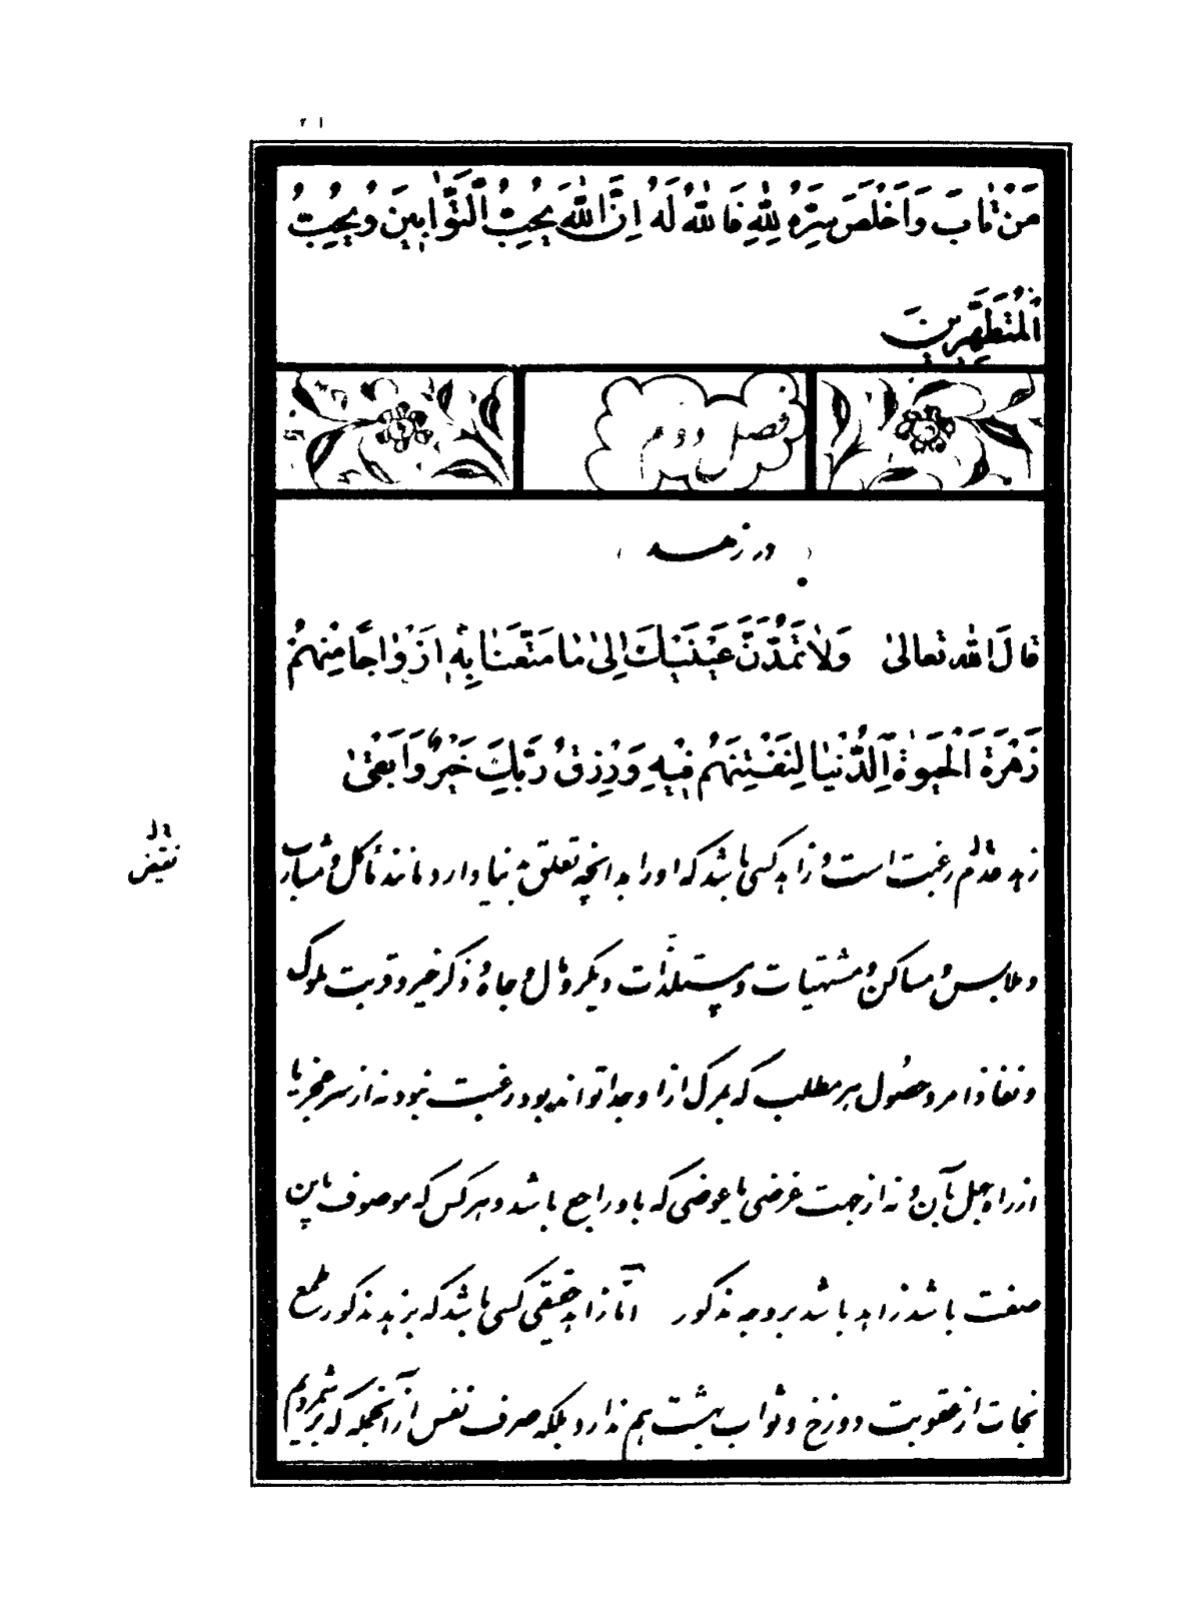 ۲۱
مَنْ تٰابَ وَاَخْلَصَ سِرَّهُ لِلّٰهِ فَاللّٰهُ لَهُ اِنَّ اللّٰهَ يُحِبُّ التَّوّٰابِينَ وَيُحِبُّ
الْمُتَطَهِّرِينَ
فصل دوم
( در زهد )
قالَ اللّٰه تعالىٰ وَلاٰ تَمُدَّنَّ عَيْنَيْكَ اِلىٰ مٰا مَتَّعْنٰا بِهِ اَزْوٰاجًا مِنْهُمْ
زَهْرَةَ الْحَيٰوةِ الدُّنْيٰا لِنَفْتِنَهُمْ فِيْهِ وَرِزْقُ رَبِّكَ خَيْرٌ وَاَبْقىٰ
زهد عدم رغبت است و زاهد کسی باشد که او را بدانچه تعلق بدنیا دارد مانند مآکل و مشارب
و ملابس و مساکن و مشتهیات و مستلذّات دیگر و مال و جاه و ذکر خیر و قربت ملوک
و نفاذ امر و حصول هر مطلب که بمرگ از او جدا تواند بود رغبت نبود نه از سر عجز یا
از راه جهل بآن و نه از جهت غرضی یا عوضی که باو راجع باشد و هر کس که موصوف باین
صفت باشد زاهد باشد بر وجه مذکور امّا زاهد حقیقی کسی باشد که بزهد مذکور طمع
نجات از عقوبت دوزخ و ثواب بهشت هم ندارد بلکه صرف نفس از آنجمله که برشمردیم
نقیض